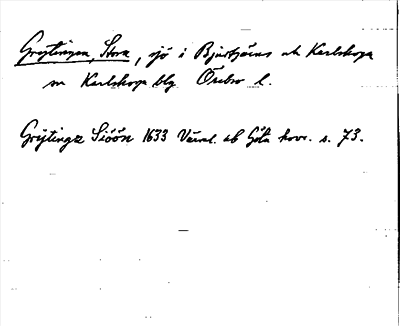 Grejtingen, Stora, sjö i Bjurtjärns och Karlskoga
sn Karlskoga blg Örebro l.
Grijtinge Siöön 1633 Värml. ob Göta kovr. s. 73.